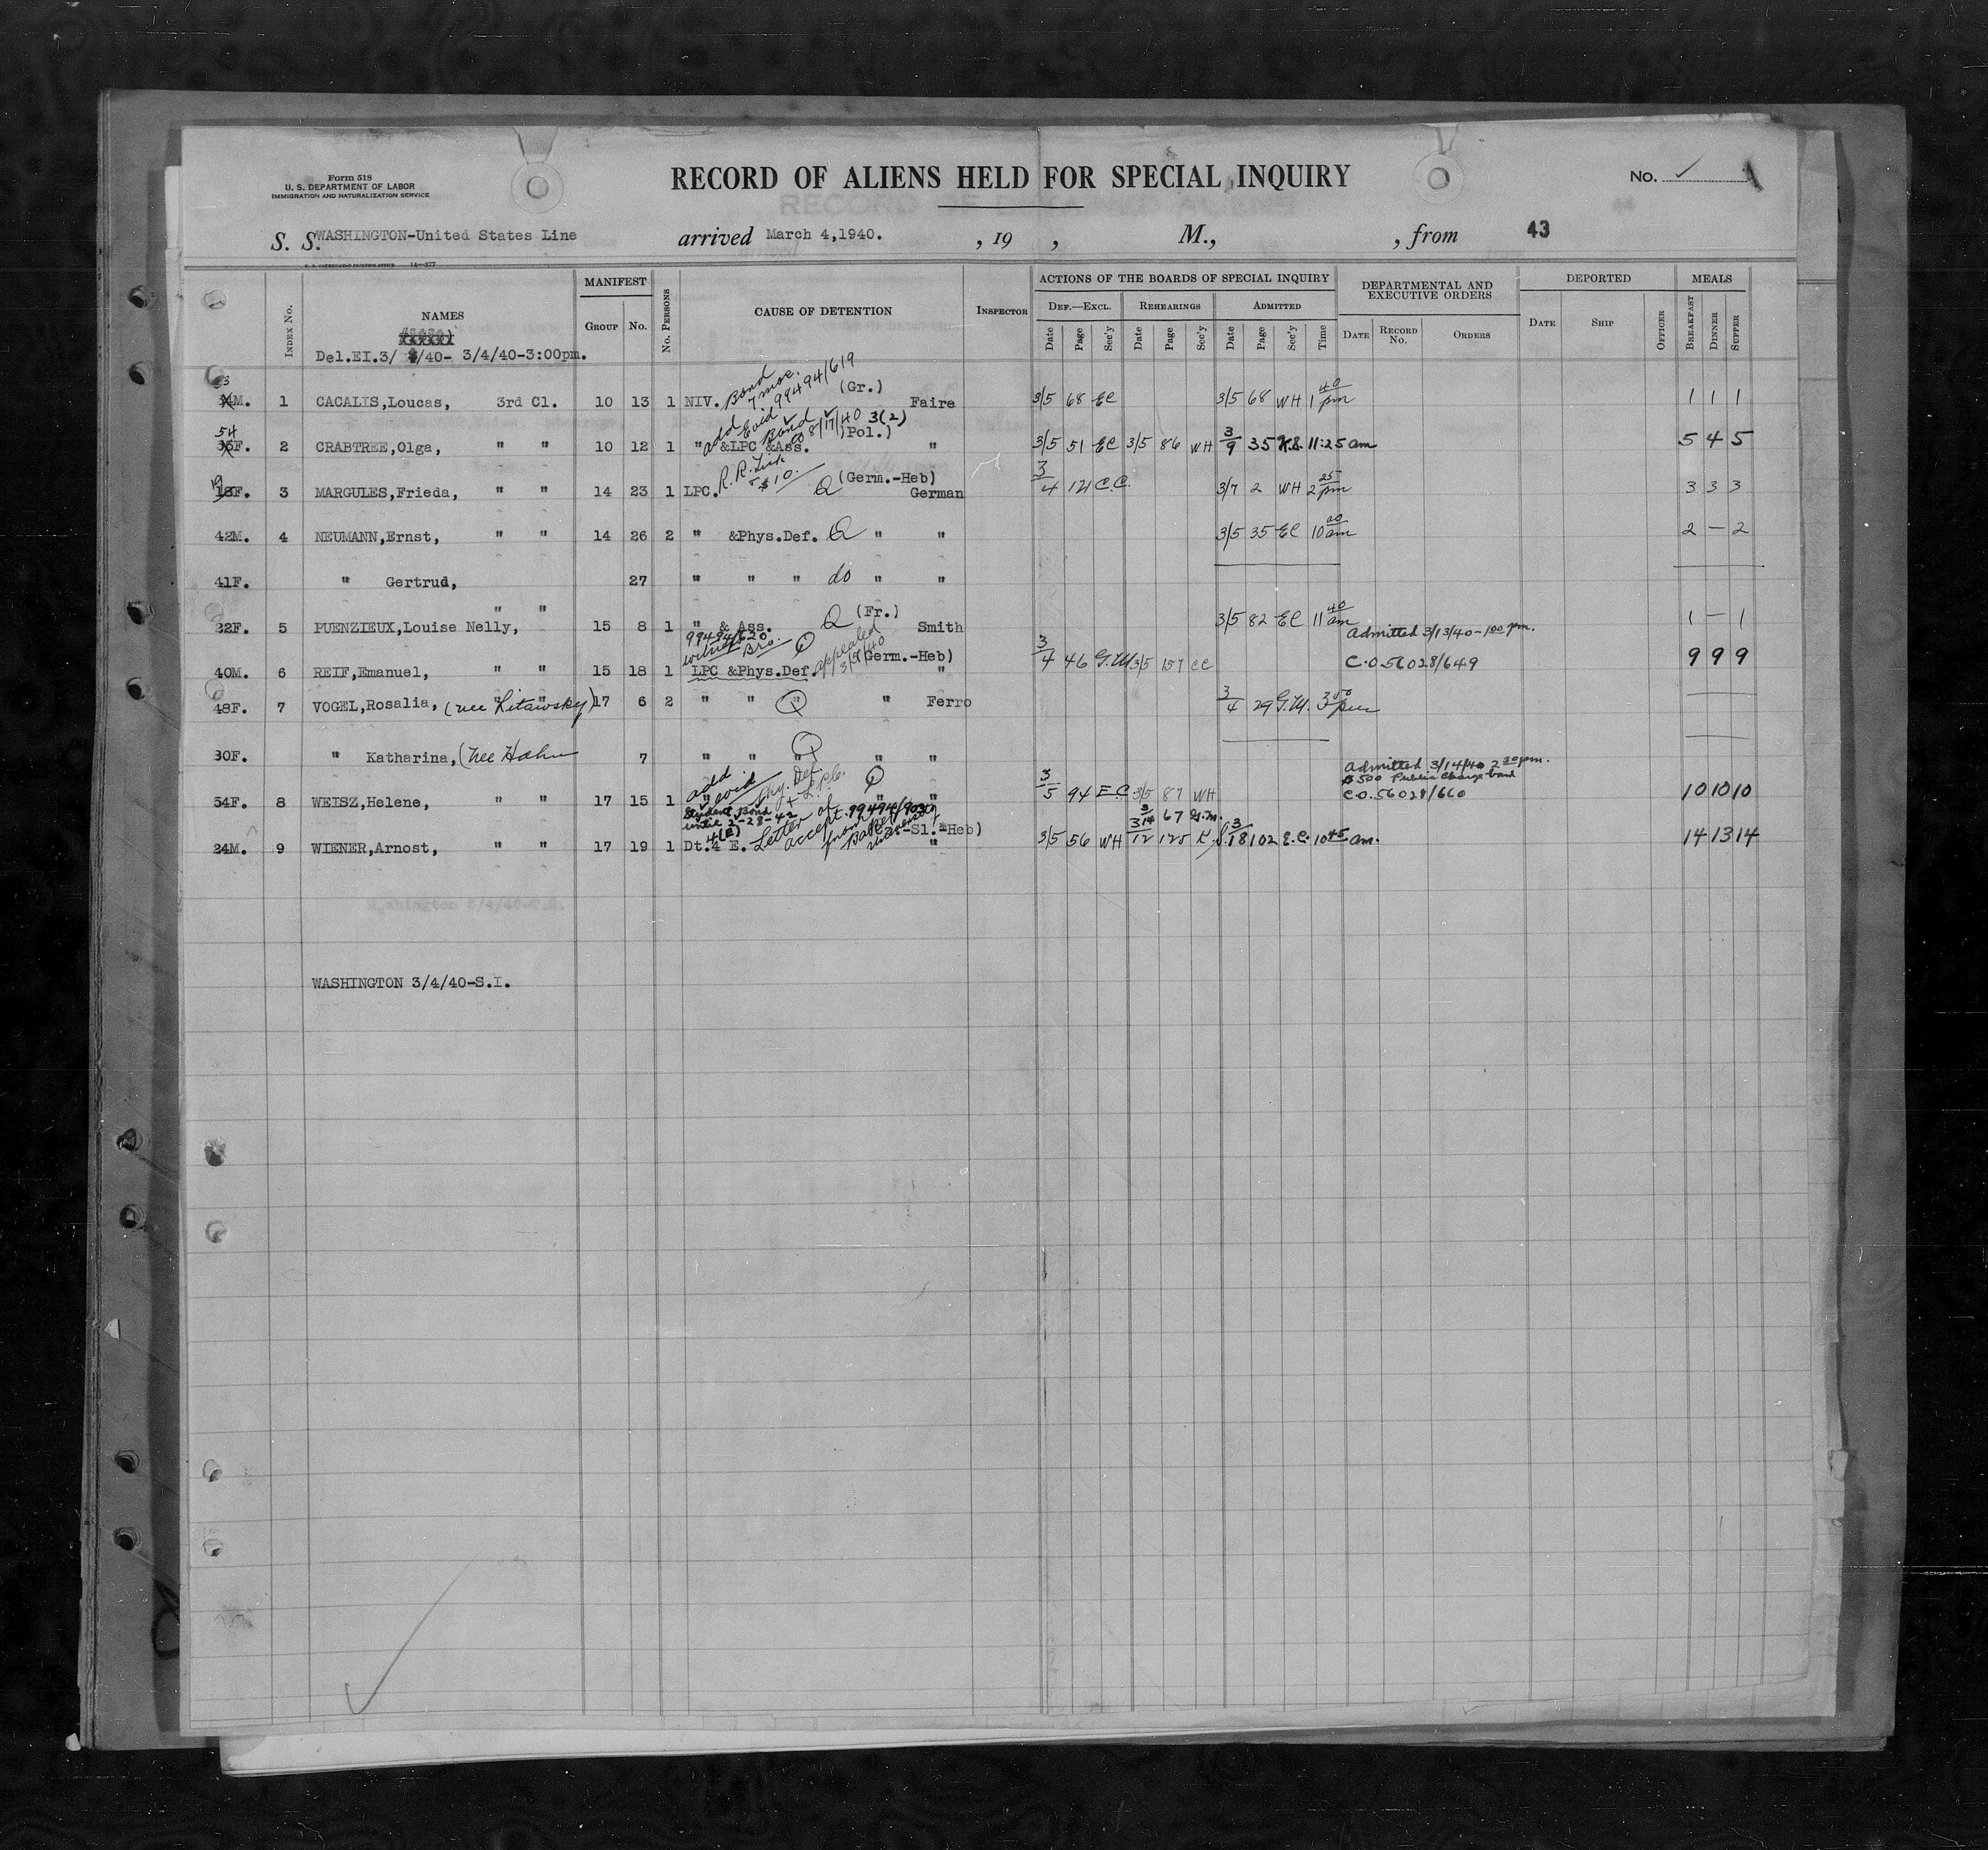 Form 518
U. S. DEPARTMENT OF LABOR
IMMIGRATION AND NATURALIZATION SERVICE
RECORD OF ALIENS HELD FOR SPECIAL INQUIRY
No.
S. S. WASHINGTON-United States Line arrived March 4,1940. , 19 , M., , from 43
14-277
INDEX No. NAMES MANIFEST GROUP No. No. PERSONS CAUSE OF DETENTION INSPECTOR
ACTIONS OF THE BOARDS OF SPECIAL INQUIRY DEPARTMENTAL AND EXECUTIVE ORDERS DEPORTED MEALS
DEF.—EXCL. REHEARINGS ADMITTED
Date Page Sec'y Date Page Sec'y Date Page Sec'y Time DATE RECORD No. ORDERS DATE SHIP OFFICER BREAKFAST DINNER SUPPER
Del.EI.3/ /40- 3/4/40-3:00pm.
Bond 7 mos. 99494/619
M. 1 CACALIS,Loucas, 3rd Cl. 10 13 1 NIV. (Gr.) Faire 3/5 68 EC 3/5 68 WH 1 40 pm 1 1 1
add Evid Bond to 8/17/40 3(2)
54 F. 2 CRABTREE,Olga, " " 10 12 1 " &LPC &Ass. (Pol.) " 3/5 51 EC 3/5 86 WH 3/9 35 K.S. 11:25 am 5 4 5
R.R. $10.
19 18F. 3 MARGULES,Frieda, " " 14 23 1 LPC. Q (Germ.-Heb) German 3/4 121 C.C. 3/7 2 WH 2 25 pm 3 3 3
42M. 4 NEUMANN,Ernst, " " 14 26 2 " &Phys.Def. Q " " 3/5 35 EC 10 00 am 2 — 2
41F. " Gertrud, 27 " " " do " "
32F. 5 PUENZIEUX,Louise Nelly, " " 15 8 1 " & Ass. Q (Fr.) Smith 3/5 82 EC 11 40 am 1 — 1
99494/620 witness Bro. Q appealed 3/5/40
Admitted 3/13/40-1 00 pm.
40M. 6 REIF,Emanuel, " " 15 18 1 LPC &Phys.Def. (Germ.-Heb) " 3/4 46 G.M 3/5 157 CC C.O.56028/649 9 9 9
48F. 7 VOGEL,Rosalia, (nee Litawsky) " " 17 6 2 " " " Q " Ferro 3/4 29 G.M. 3 00 pm
30F. " Katharina, (nee Hahn 7 " " " Q " "
add evid Phy. Def. + L.P.C. Q
Admitted 3/14/40 2 30 pm.
$500 Public Charge bond
54F. 8 WEISZ,Helene, " " 17 15 1 " " " 3/5 94 E.C 3/5 87 WH C.O.56028/660 10 10 10
Student Bond until 2-28-42 4(E) Letter of accept. from Baker University 99494/903
3/14 67 G.M.
24M. 9 WIENER,Arnost, " " 17 19 1 Dt.4 E. -Sl.-Heb) " 3/5 56 WH 3/12 125 K.S. 3/18 102 E.C. 10 45 am. 14 13 14
WASHINGTON 3/4/40-S.I.